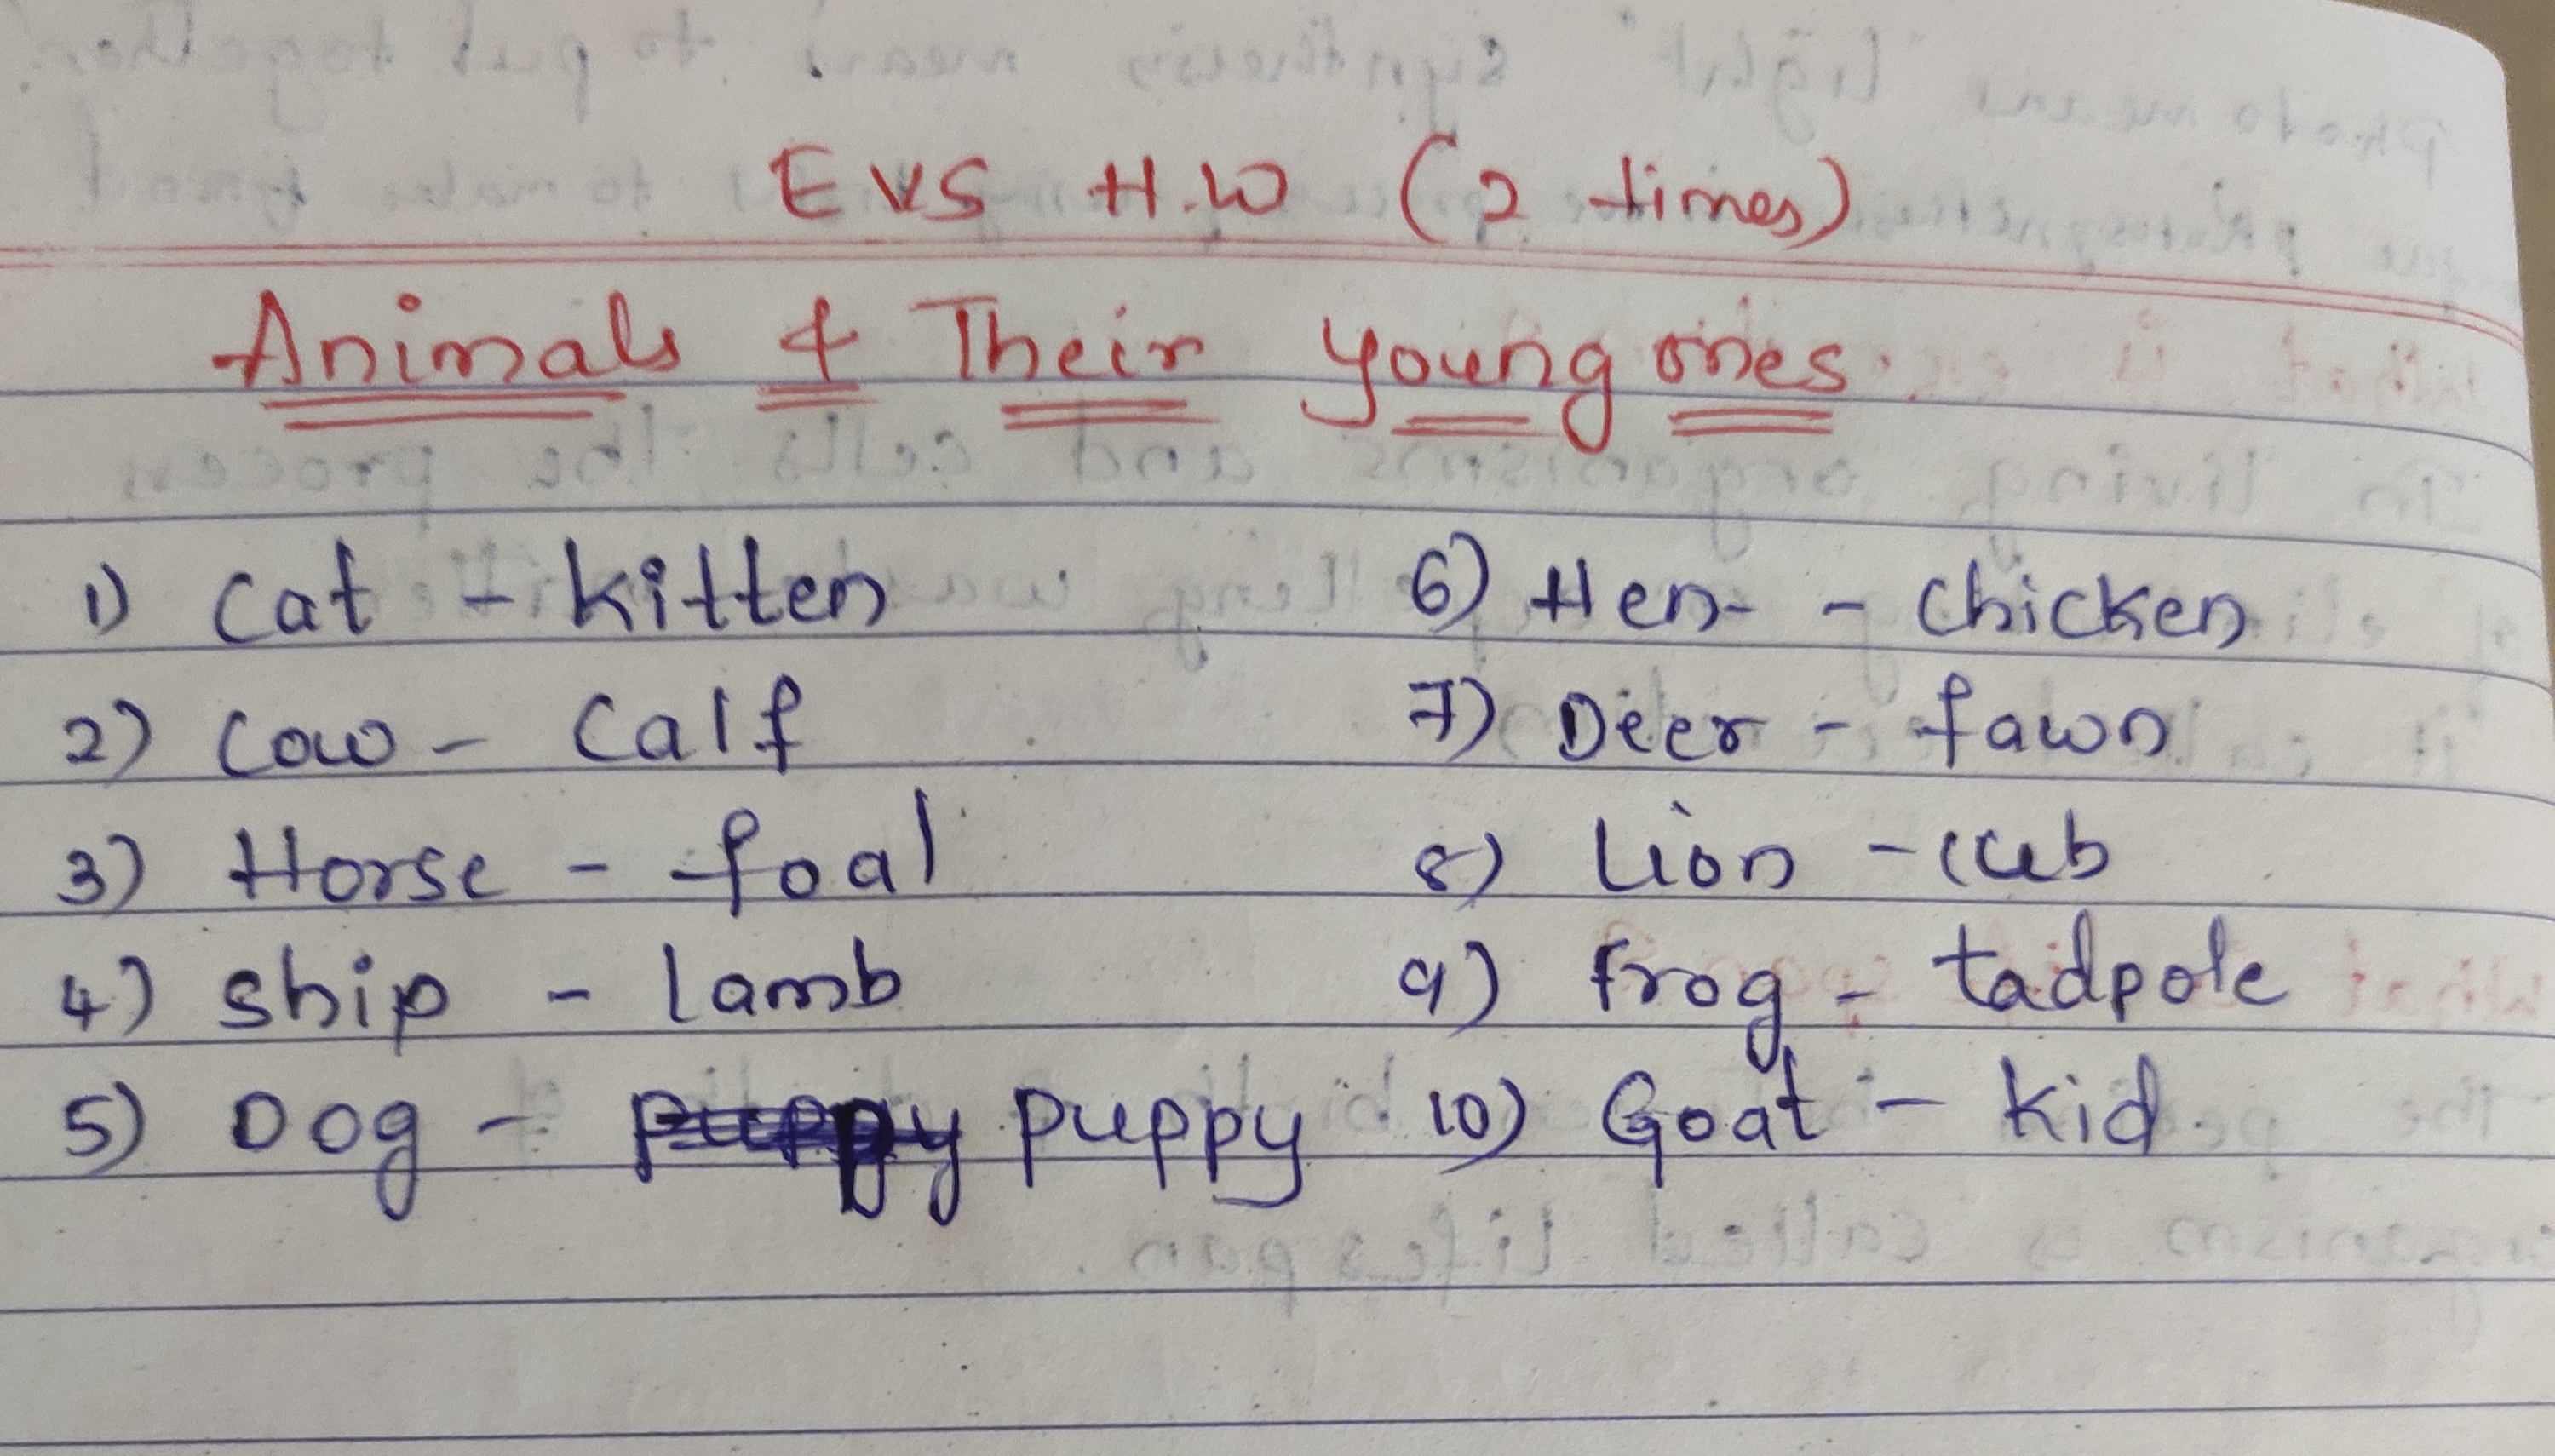 EVS H.W (2 times)
Animals & Their young ones.
1) Cat - kitten
2) Cow - Calf
3) Horse - foal
4) ship - lamb
5) Dog - puppy puppy
6) Hen - chicken
7) Deer - fawn
8) Lion - cub
9) frog - tadpole
10) Goat - kid